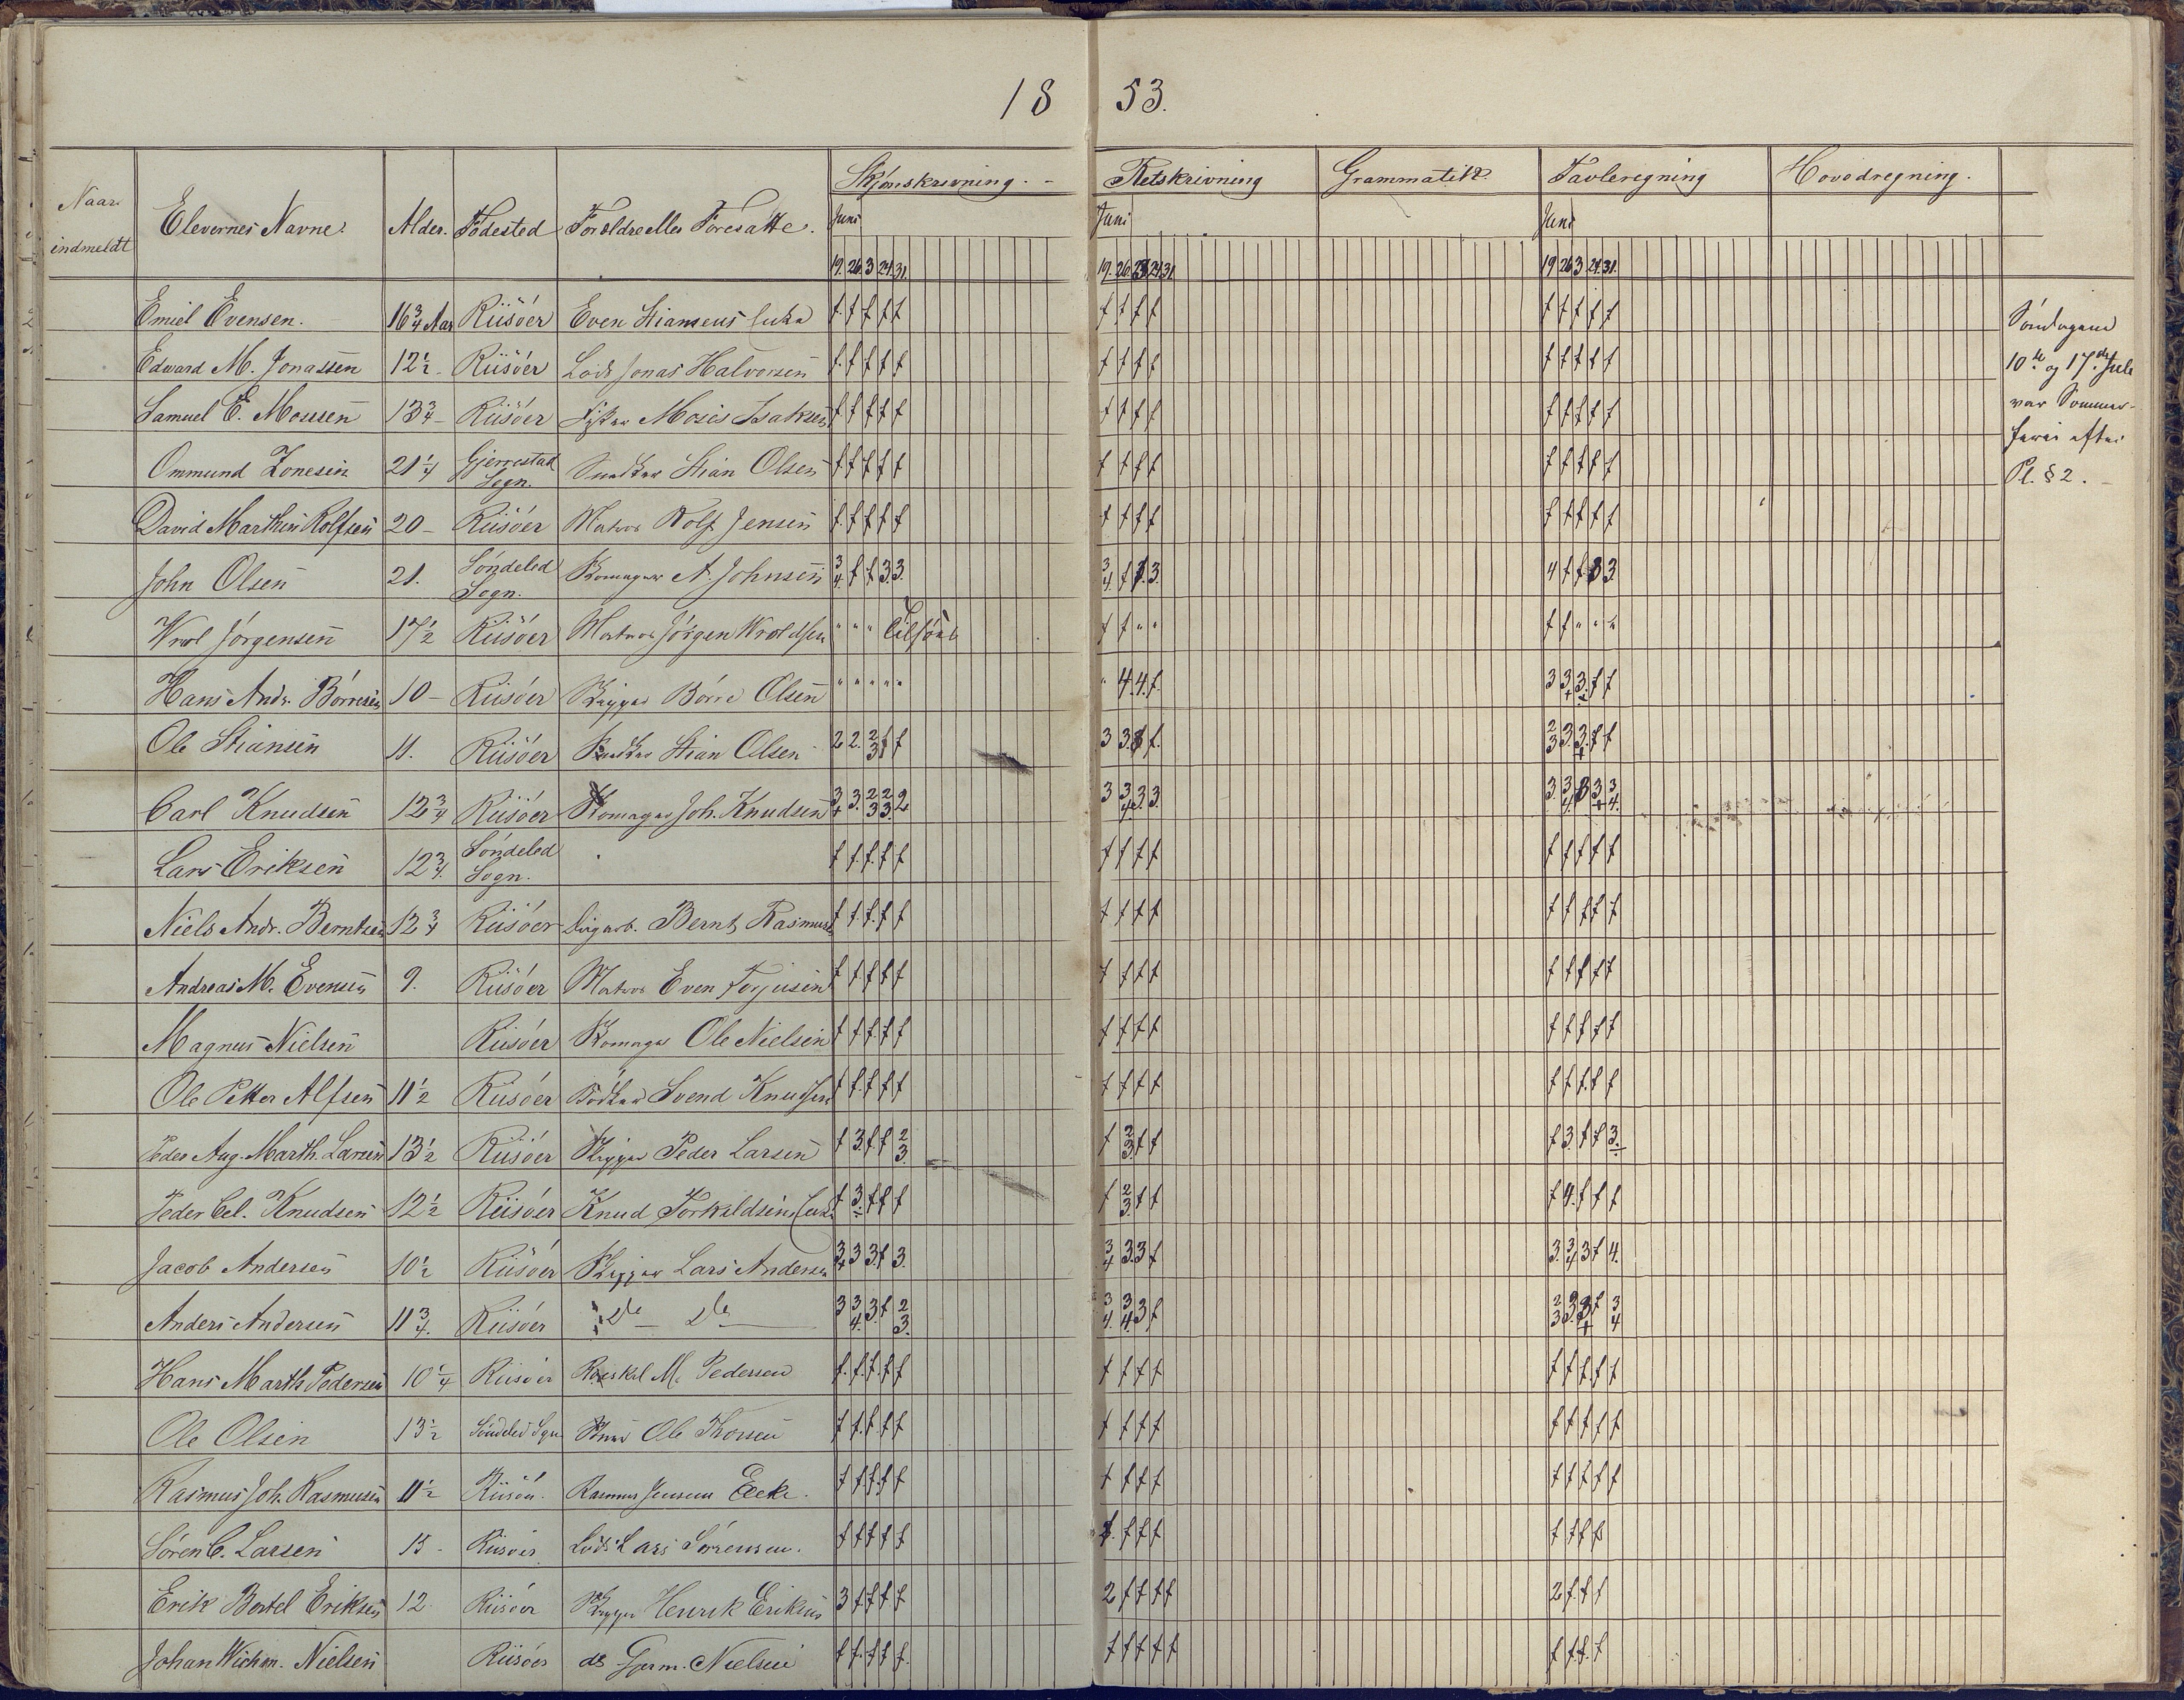 18 53.
Naar indmeldt Elevernes Navne. Alder. Fødested Forældre eller Foresatte. Skjønskrivning. - Retskrivning Grammatik. Tavleregning Hovedregning.
Juni Juni Juni
19. 26. 3 24. 31. 19. 26. 24. 31. 19 26 3 24. 31.
Emiel Evensen. 16 3/4 Aar Riisöer Even f. f f f f f f f f f f f f f
Edvard M. Jonassen 12 1/2 - Riisöer Lods Jonas Halvorsen f. f f f f f f f f f f f f f
Samuel E. Mossesen 13 3/4 - Riisöer Moses Isaksen f f f f f f f f f f f f f f
Ommund Zonesen 21 1/4 Gjerrestad Sogn. Stian Olsen f f f f f f f f f f f f f f
David Marthin Rolfsen 20 - Riisöer Matros Rolf Jensen f f f f f f f f f f f f f f
John Olsen 21. Söndeled Sogn. A. Johnsen 3/4. f f 3 3. 3/4. f 3. 4 f f 3 3.
Wrol Jörgensen 17 1/2 Riisöer Matros Jörgen Wroldsen " " " Tilsöes f f " " f f " " "
Hans Andr. Börresen 10 - Riisöer Skipper Börre Olsen " " " " " " 4. 4. f. 3 3 3. f f
Ole Stiansen 11. Riisöer Stian Olsen 2 2. 2/3 f f 3 3. f. 2/3 3. 3. f f
Carl Knudsen 12 3/4 Riisöer Joh. Knudsen 3 3. 2/3 2/3. 2 3 3/4 3 3. 3. 3/4. 3 3 3/4.
Lars Eriksen 12 3/4. Söndeled Sogn. f f f f f f f f f f f f f f
Niels Andr. Berntsen 12 3/4 Riisöer Bernt Rasmus f f f f f f f f f f f f f f
Andreas M. Evensen 9. Riisöer Matros Even Torjusen f f f f f f f f f f f f f f
Magnus Nielsen Riisöer Ole Nielsen f f f f f f f f f f f f f f
Ole Petter Alfsen 11 1/2 Riisöer Bödker Svend Knudsen f f f f f f f f f f f f f f
Peder Aug. Marth. Larsen 13 1/2 Riisöer Skipper Peder Larsen f 3. f f 2/3. f 2/3. f f f 3. f f 3.
Peder Cel. Knudsen 12 1/2 Riisöer Knud Torkildsens f 3. f f f f 2/3. f f f 4. f f f
Jacob Andersen 10 1/2 Riisöer Skipper Lars Andersen 3 3 3. f 3. 3/4 3. 3 f 3. 3/4 3 f 4.
Anders Andersen 11 3/4. Riisöer Do Do 3 3/4. 3. f 2/3. 3/4. 3/4. 3 f 2/3 3. 3 f 3/4
Hans Marth Pedersen 10 1/4 Riisöer M. Pedersen f. f. f. f f f f f f f f f f f
Ole Olsen 13 1/2 Söndeled Sgn Ole f f f f f f f f f f f f f f
Rasmus Joh. Rasmusen 11 1/2 Riisöer. Rasmus Jensens f f f f f f f f f f f f f f
Sören C. Larsen 15 - Riisöer Lods Lars Sörensen. f f f f f f. f f f f f f f
Erik Bertel Eriksen 12. Riisöer Skipper Henrik Eriksen 3 f f f f 2 f f f f 2 f. f f
Johan Wichm. Nielsen Riisöer do Gjerm. Nielsen f f. f f f. f f f f f f f. f. f
Söndagene
10de og 17de Juli
var Sommer-
ferie efter
Pl. § 2. -